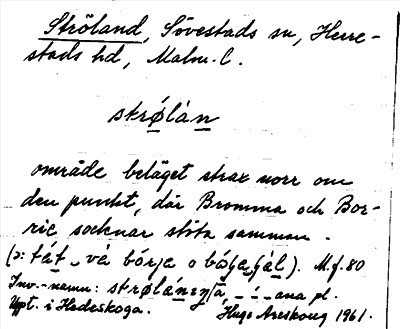 Ströland, Sövestads sn, Herre-
stads hd, Malm. l.
skrø̱làn
område beläget strax norr om
den punkt, där Bromma och Bor-
rie socknar stöta samman.
(ɔ: tát_vé bórja o
M.f.80
Inv.-namn:
ana pl.
Uppt. i Hedeskoga. Hugo Areskoug 1961.